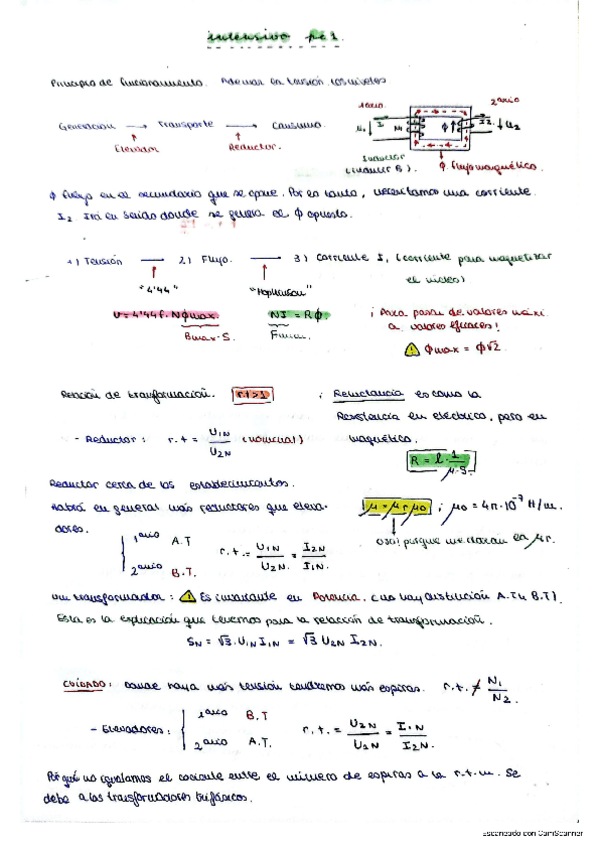 intensivo pc1.
Principio de funcionamiento. Adecuar en tensión los niveles
1ario. 2ario
Generación → Transporte → Consumo.
Elevador. Reductor.
U1 I N1 ϕ I2 U2
Inductor
ϕ Flujo magnético.
ϕ flujo en el secundario que se opone. Por lo tanto, necesitamos una corriente
I2. Irá en sentido donde se genera el ϕ opuesto.
1) Tensión → 2) Flujo. → 3) Corriente I, (corriente para magnetizar
el núcleo)
"4'44" "Hopkinson"
U=4'44f.Nϕmax. NI = Rϕ.
Bmax·S. Fmm.
¡ Para pasar de valores máxi
a valores eficaces!
⚠ ϕmax = ϕ√2.
Relación de transformación. r.t>1
- Reductor : r.t = U1N / U2N (nominal)
¡ Reluctancia es como la
Resistencia en eléctrico, pero en
magnético.
R = l · 1 / μ·S
Reductor cerca de los establecimientos.
Habrá en general más reductores que eleva-
dores.
μ = μr μ0 ; μ0 = 4π·10⁻⁷ H/m.
ojo! porque me darán la μr.
1ario A.T
2ario B.T.
r.t. = U1N / U2N. = I2N / I1N.
Un transformador : ⚠ Es invariante en Potencia. (no hay distinción A.T y B.T)
Esta es la explicación que tenemos para la relación de transformación.
SN = √3. U1N I1N = √3 U2N I2N.
CUIDADO : donde haya más tensión tendremos más espiras. r.t. ≠ N1 / N2.
- Elevadores :
1ario B.T
2ario A.T.
r.t. = U2N / U1N = I1N / I2N.
Por qué no igualamos el cociente entre el número de espiras a la r.t.m. Se
debe a los transformadores trifásicos.
Escaneado con CamScanner